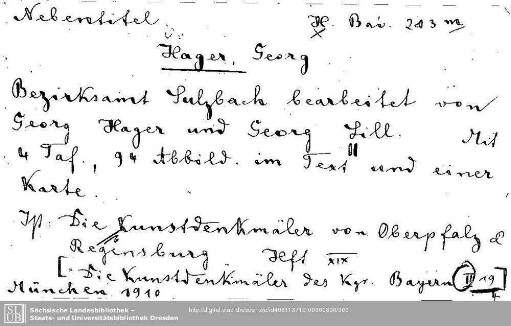 Nebentitel H. Bav. 283 m
Hager, Georg
Bezirksamt Sulzbach bearbeitet von
Georg Hager und Georg Lill. Mit
4 Taf., 94 Abbild. im Text und einer
Karte.
Die Kunstdenkmäler von Oberpfalz &
Regensburg Heft XIX
[Die Kunstdenkmäler des Kgr. Bayern II 19]
München 1910
SLUB
Sächsische Landesbibliothek –
Staats- und Universitätsbibliothek Dresden